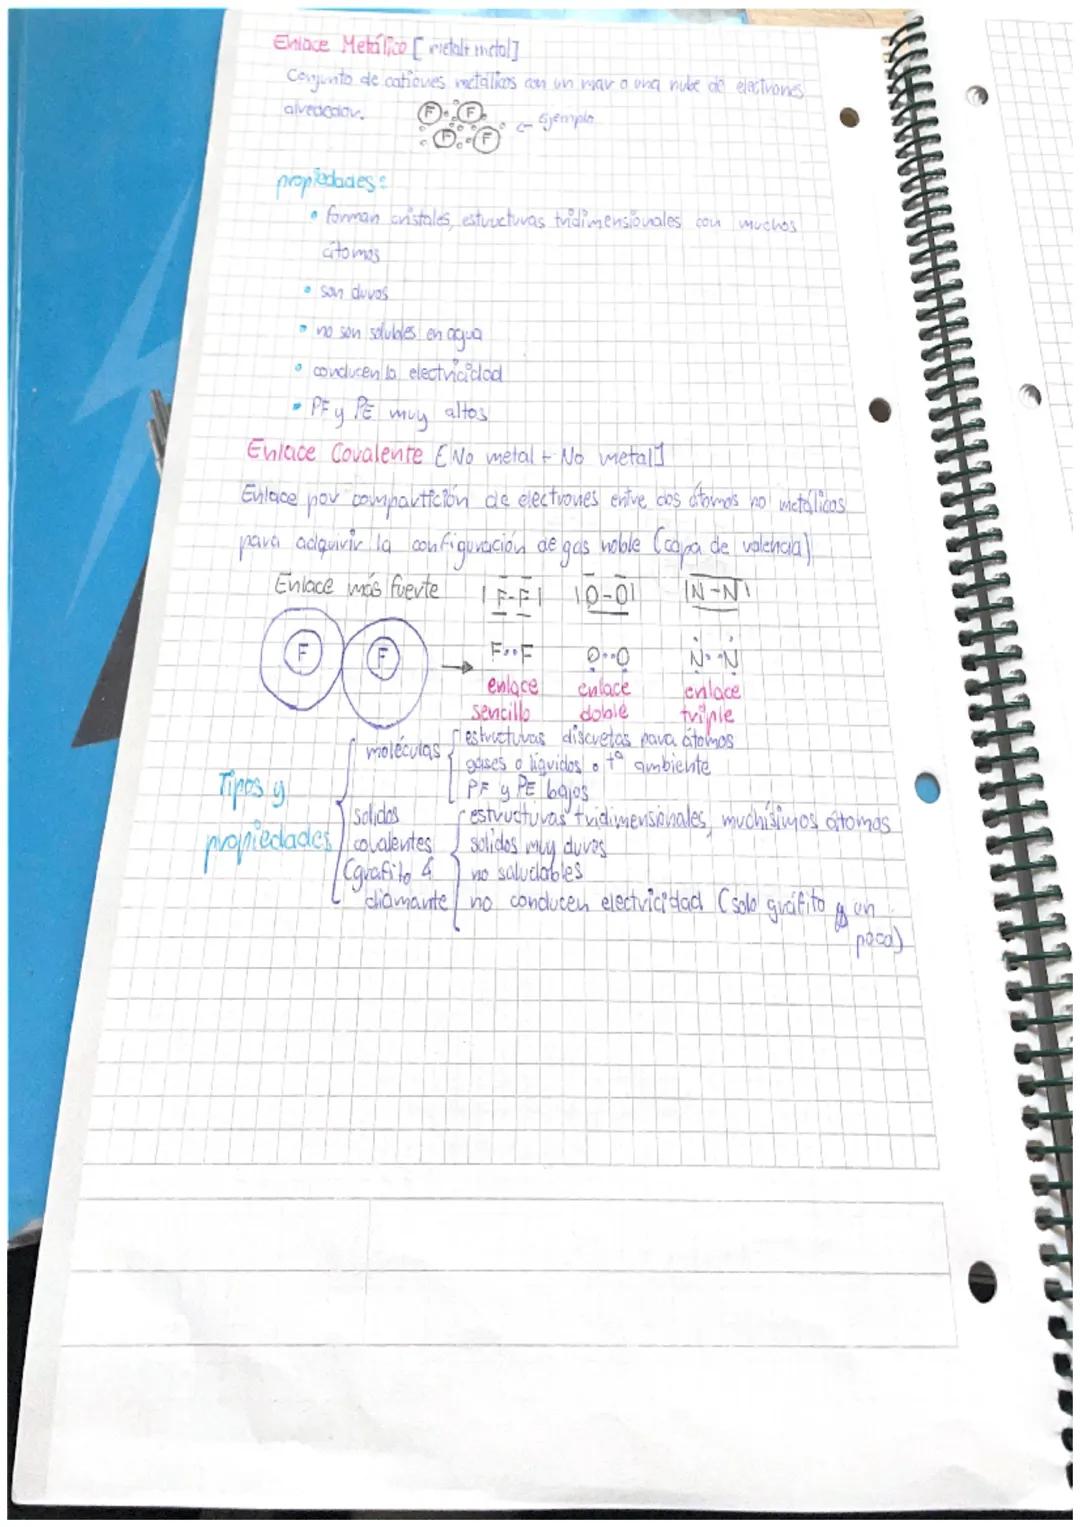 Enlace Metálico [metal + metal]
Conjunto de cationes metálicos con un mar o una nube de electrones
alrededor.
F F
F F ← Ejemplo
propiedades:
• forman cristales, estructuras tridimensionales con muchos
átomos
• son duros
• no son solubles en agua
• conducen la electricidad
• PF y PE muy altos
Enlace Covalente [No metal + No metal]
Enlace por compartición de electrones entre dos átomos no metálicos
para adquirir la configuración de gas noble (capa de valencia)
Enlace más fuerte |F-F| |O-O| |N-N|
F F → F··F O··O N··N
enlace enlace enlace
sencillo doble triple
moléculas estructuras discretas para átomos
gases o líquidos a tª ambiente
PF y PE bajos
Tipos y
propiedades
solidos
covalentes
(grafito &
diamante
estructuras tridimensionales, muchísimos átomos
solidos muy duros
no saludables
no conducen electricidad (solo gráfito un
poco)